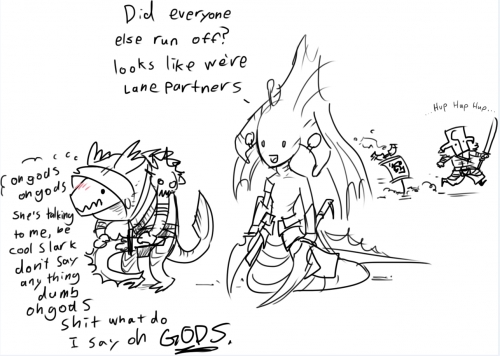 Did everyone
else run off?
looks like we're
Lane partners
...Hup Hup Hup...
oh gods
oh gods
She's talking
to me, be
cool Slark
don't say
any thing
dumb
oh gods
shit what do
I say oh GODS.